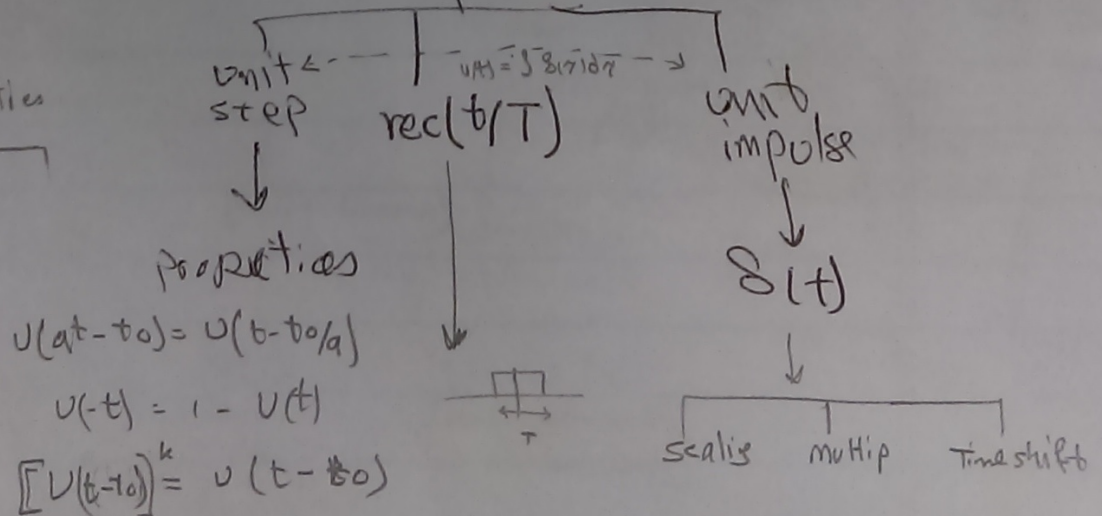 ties
unit
step
u(t) = ∫ δ(τ)dτ
rec(t/T)
unit
impulse
properties
δ(t)
U(at-to) = U(t-to/a)
U(-t) = 1 - U(t)
[U(t-to)]^k = U(t-to)
T
scalig
multip
Time shift